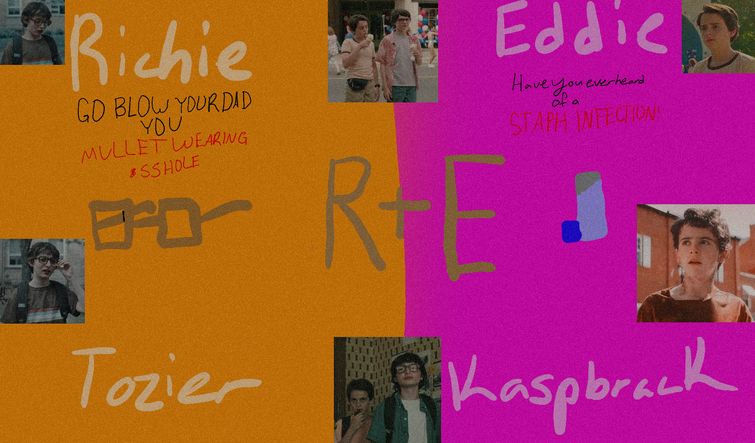 Richie
GO BLOW YOUR DAD
YOU
MULLET WEARING
$SSHOLE
Eddie
Have you ever heard
of a
STAPH INFECTION!
R+E
Tozier
Kaspbrack